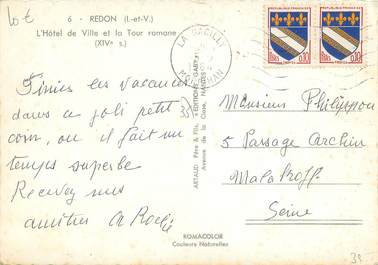 Lot
6 - REDON (I.-et-V.)
L'Hôtel de Ville et la Tour romane
(XIVe s.)
LA GACILLY
MORBIHAN
REPUBLIQUE FRANÇAISE
POSTES 0,10
REPUBLIQUE FRANÇAISE
POSTES 0,10
Finies les vacances
dans ce joli petit
coin, ou il fait un
temps superbe
Recevez mes
amitiés A Roche
35
ARTAUD Père & Fils, EDITIONS GABY
Avenue de la Close, NANTES
Monsieur Philippon
5 Passage Archin
Malakoff
Seine
ROMACOLOR
Couleurs Naturelles
35